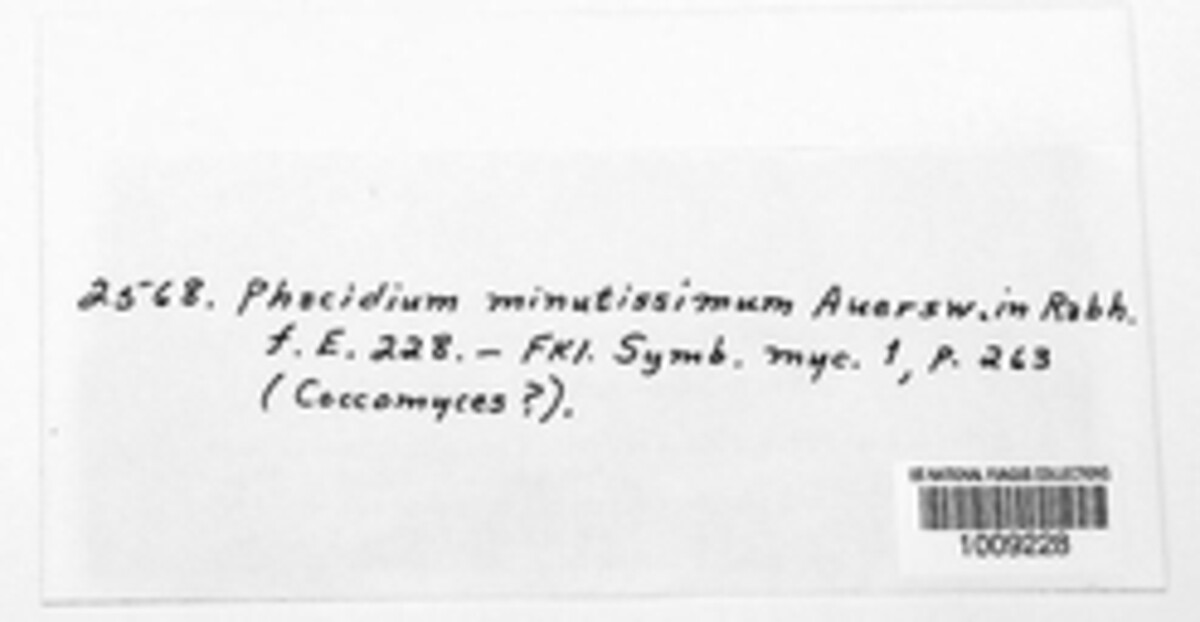 2568. Phacidium minutissimum Auersw. in Rabh.
f. E. 228. — FKl. Symb. myc. 1, p. 263
(Coccomyces?).
US NATIONAL FUNGUS COLLECTIONS
1009228